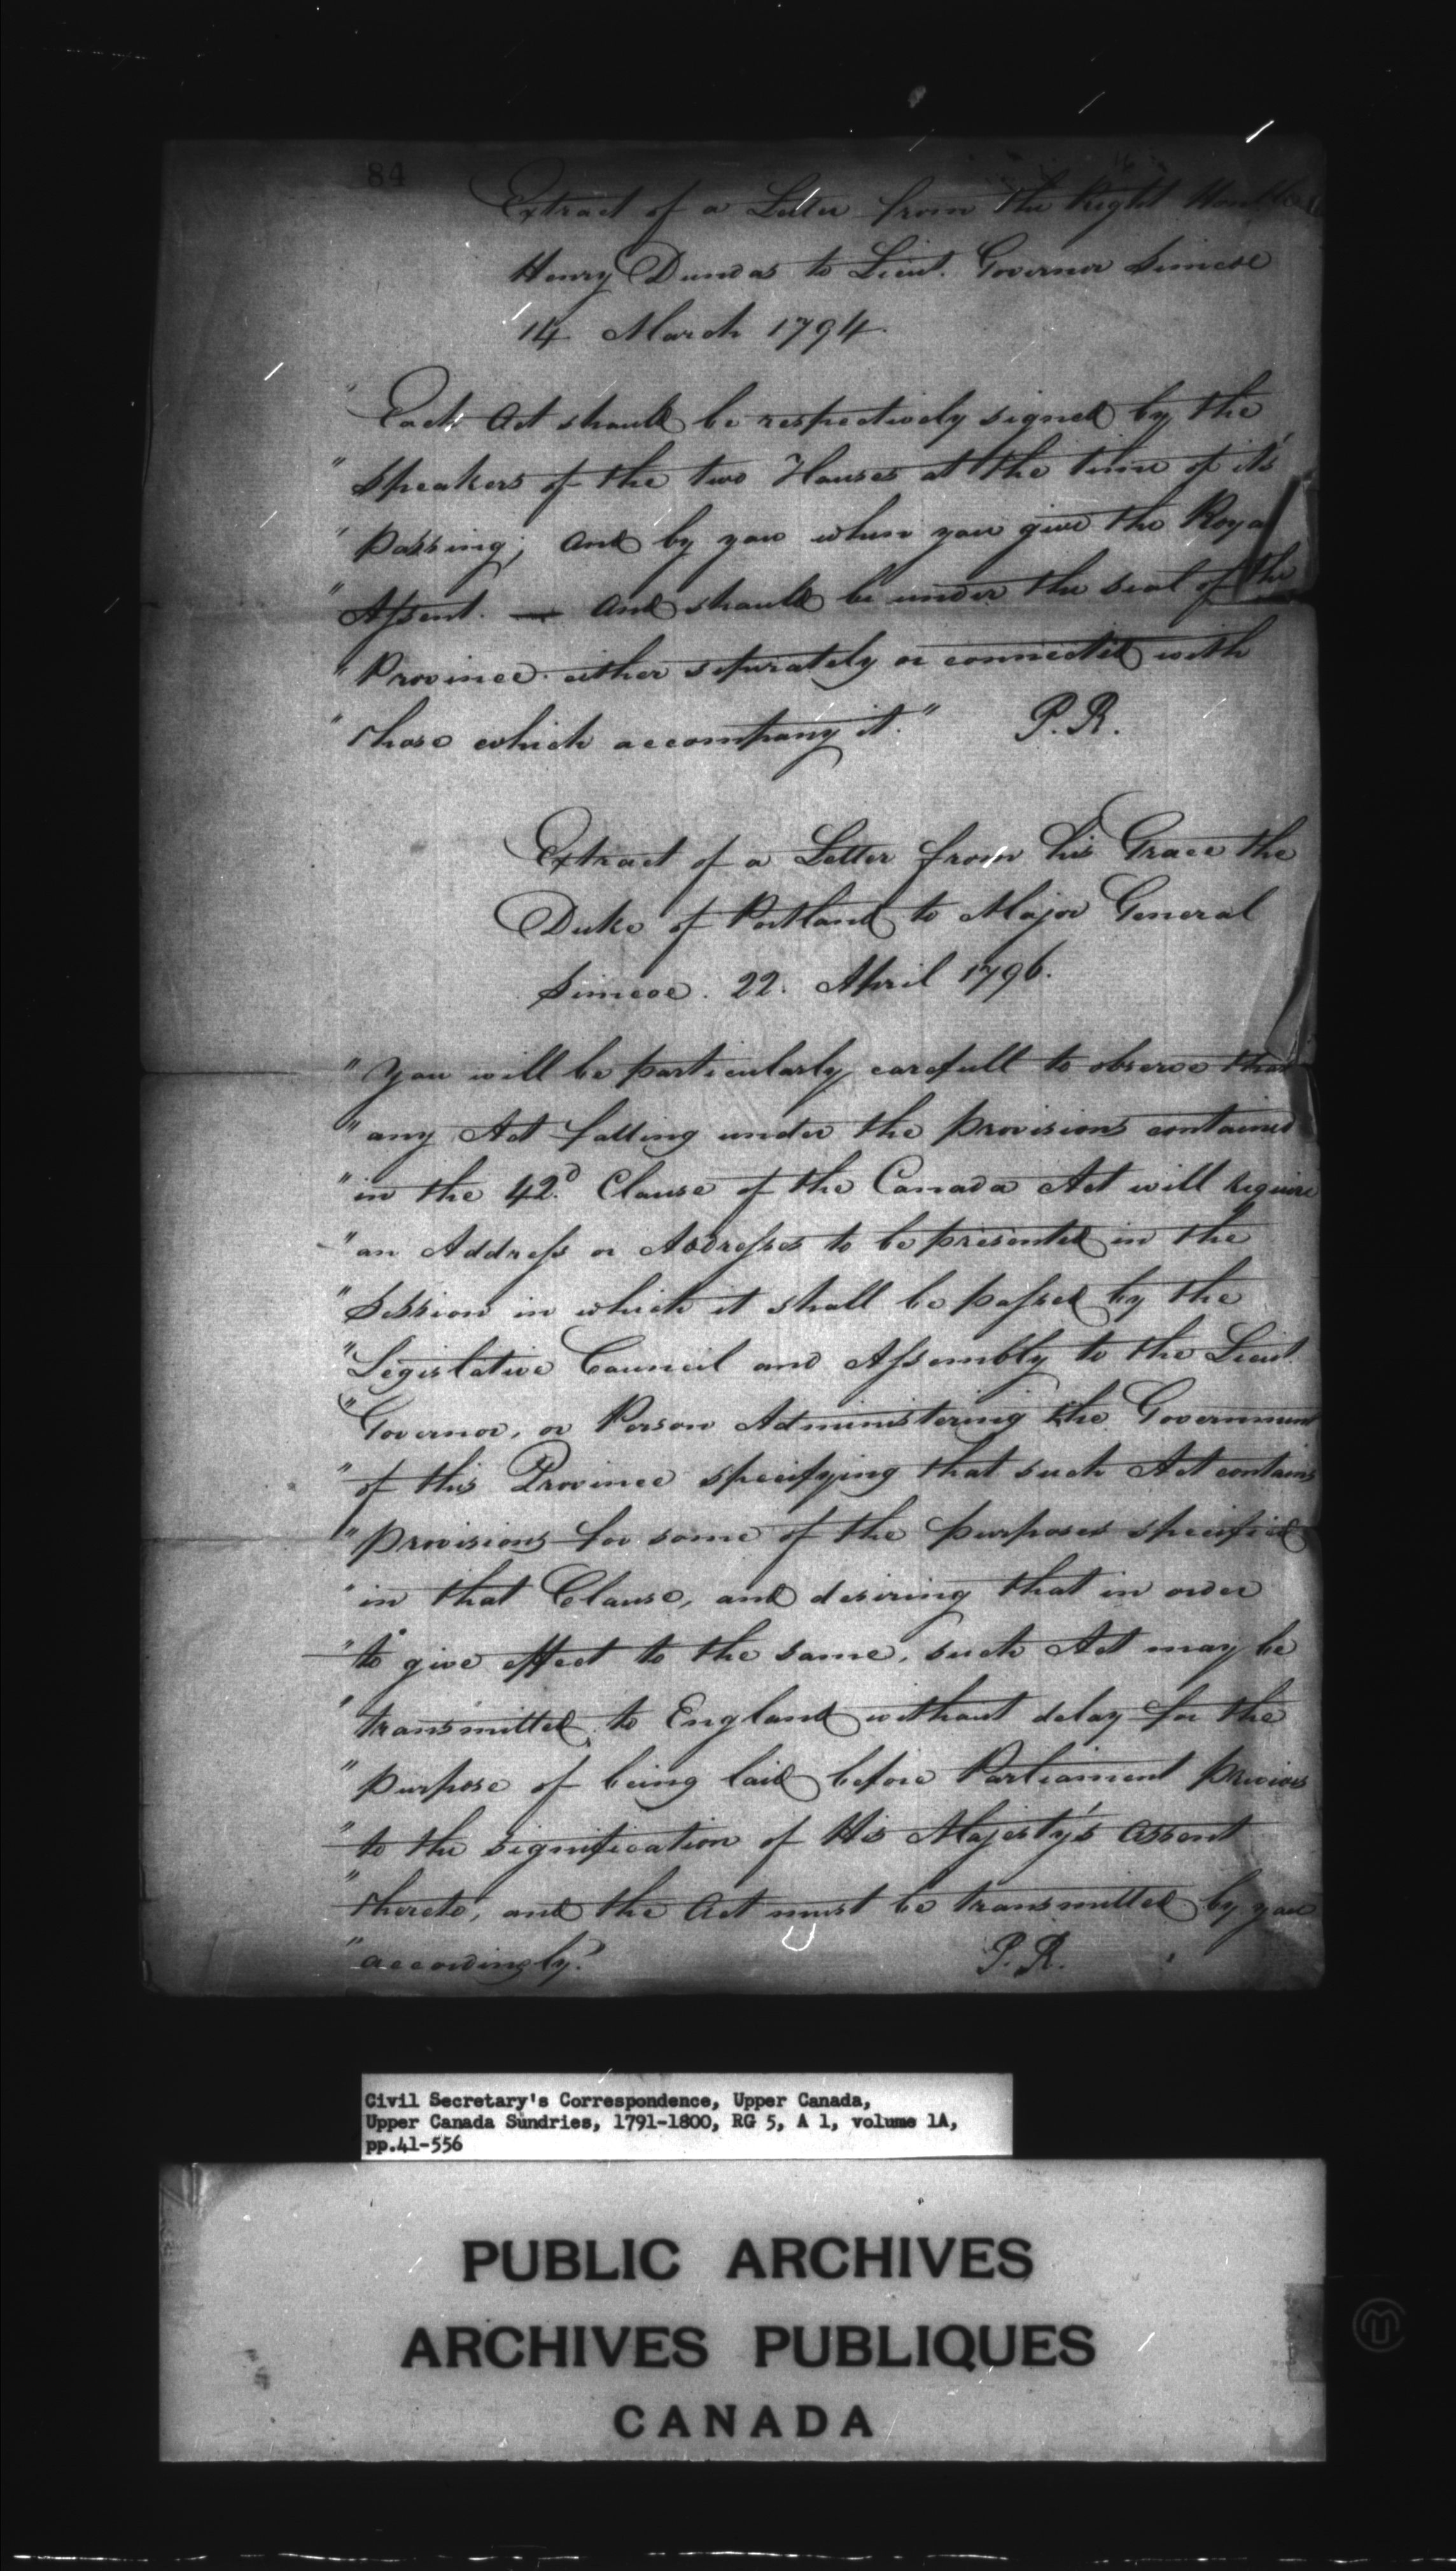 84
Extract of a Letter from the Right Honble
Henry Dundas to Lieut. Governor Simcoe
14 March 1794.
" Each Act should be respectively signed by the
" Speakers of the two Houses at the time of it's
" passing; and by you when you give the Royal
" Assent. — And should be under the seal of the
" Province either seperately or connected with
" those which accompany it." P.R.
Extract of a Letter from his Grace the
Duke of Portland to Major General
Simcoe. 22. April 1796.
" You will be particularly carefull to observe that
" any Act falling under the provisions contained
" in the 42.d Clause of the Canada Act will require
" an Address or Addresses to be presented in the
" Session in which it shall be passed by the
" Legislative Council and Assembly to the Lieut.
" Governor, or Person Administering the Government
" of this Province specifying that such Act contains
" provisions for some of the purposes specified
" in that Clause, and desiring that in order
" to give effect to the same, such Act may be
" transmitted to England without delay for the
" purpose of being laid before Parliament previous
" to the signification of His Majesty's assent
" thereto, and the Act must be transmitted by you
" accordingly." P.R.
Civil Secretary's Correspondence, Upper Canada,
Upper Canada Sundries, 1791-1800, RG 5, A 1, volume 1A,
pp.41-556
PUBLIC ARCHIVES
ARCHIVES PUBLIQUES
CANADA